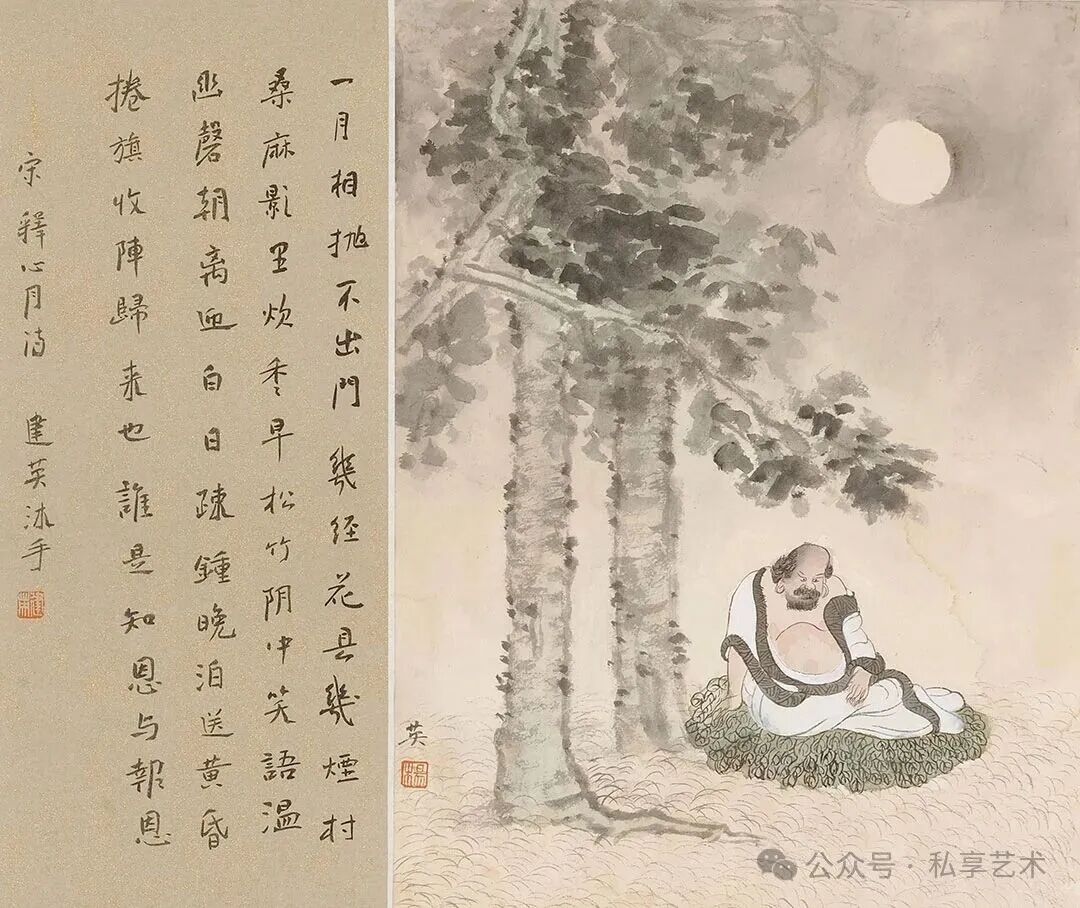 一月相抛不出門 幾经花县幾煙村
桑麻影里炊黍早松竹阴中笑語温
幽磬朝离迎白日疎鍾晚泊送黄昏
捲旗收陣歸来也誰是知恩与報恩
宋 釋心月诗 建英沐手
英
公众号 · 私享艺术